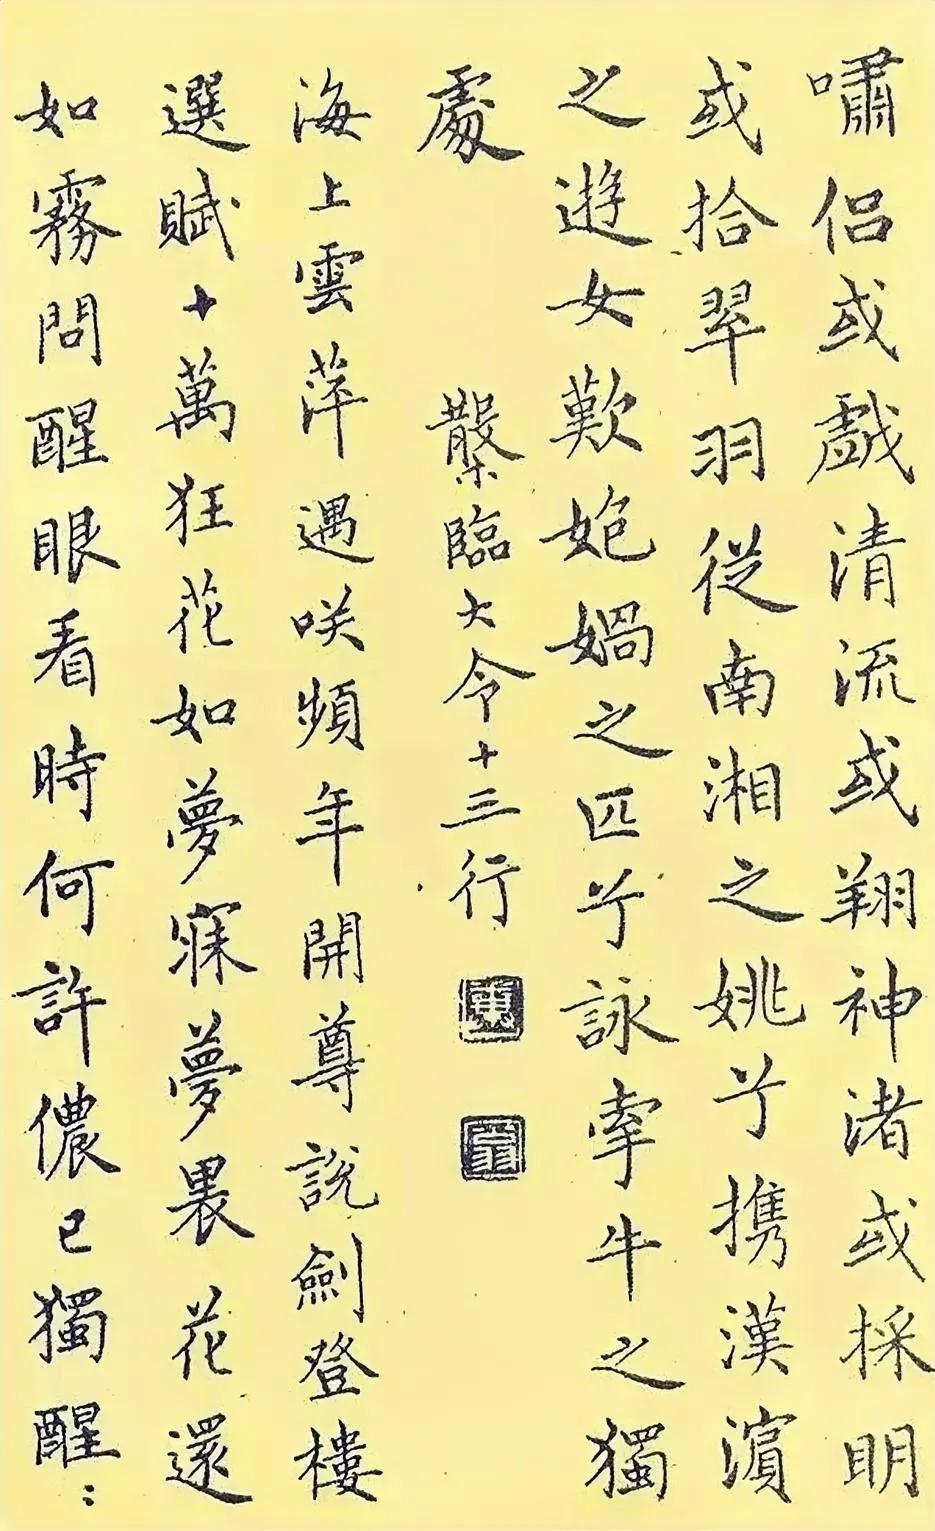 嘯侣或戲清流或翔神渚或採明
或拾翠羽從南湘之姚兮携漢濵
之遊女歎㚿媧之匹兮詠牽牛之獨
處
繄臨大令十三行
海上雲萍遇咲頻年開尊說劍登樓
選賦十萬狂花如夢寐夢裏花還
如霧問醒眼看時何許儂已獨醒